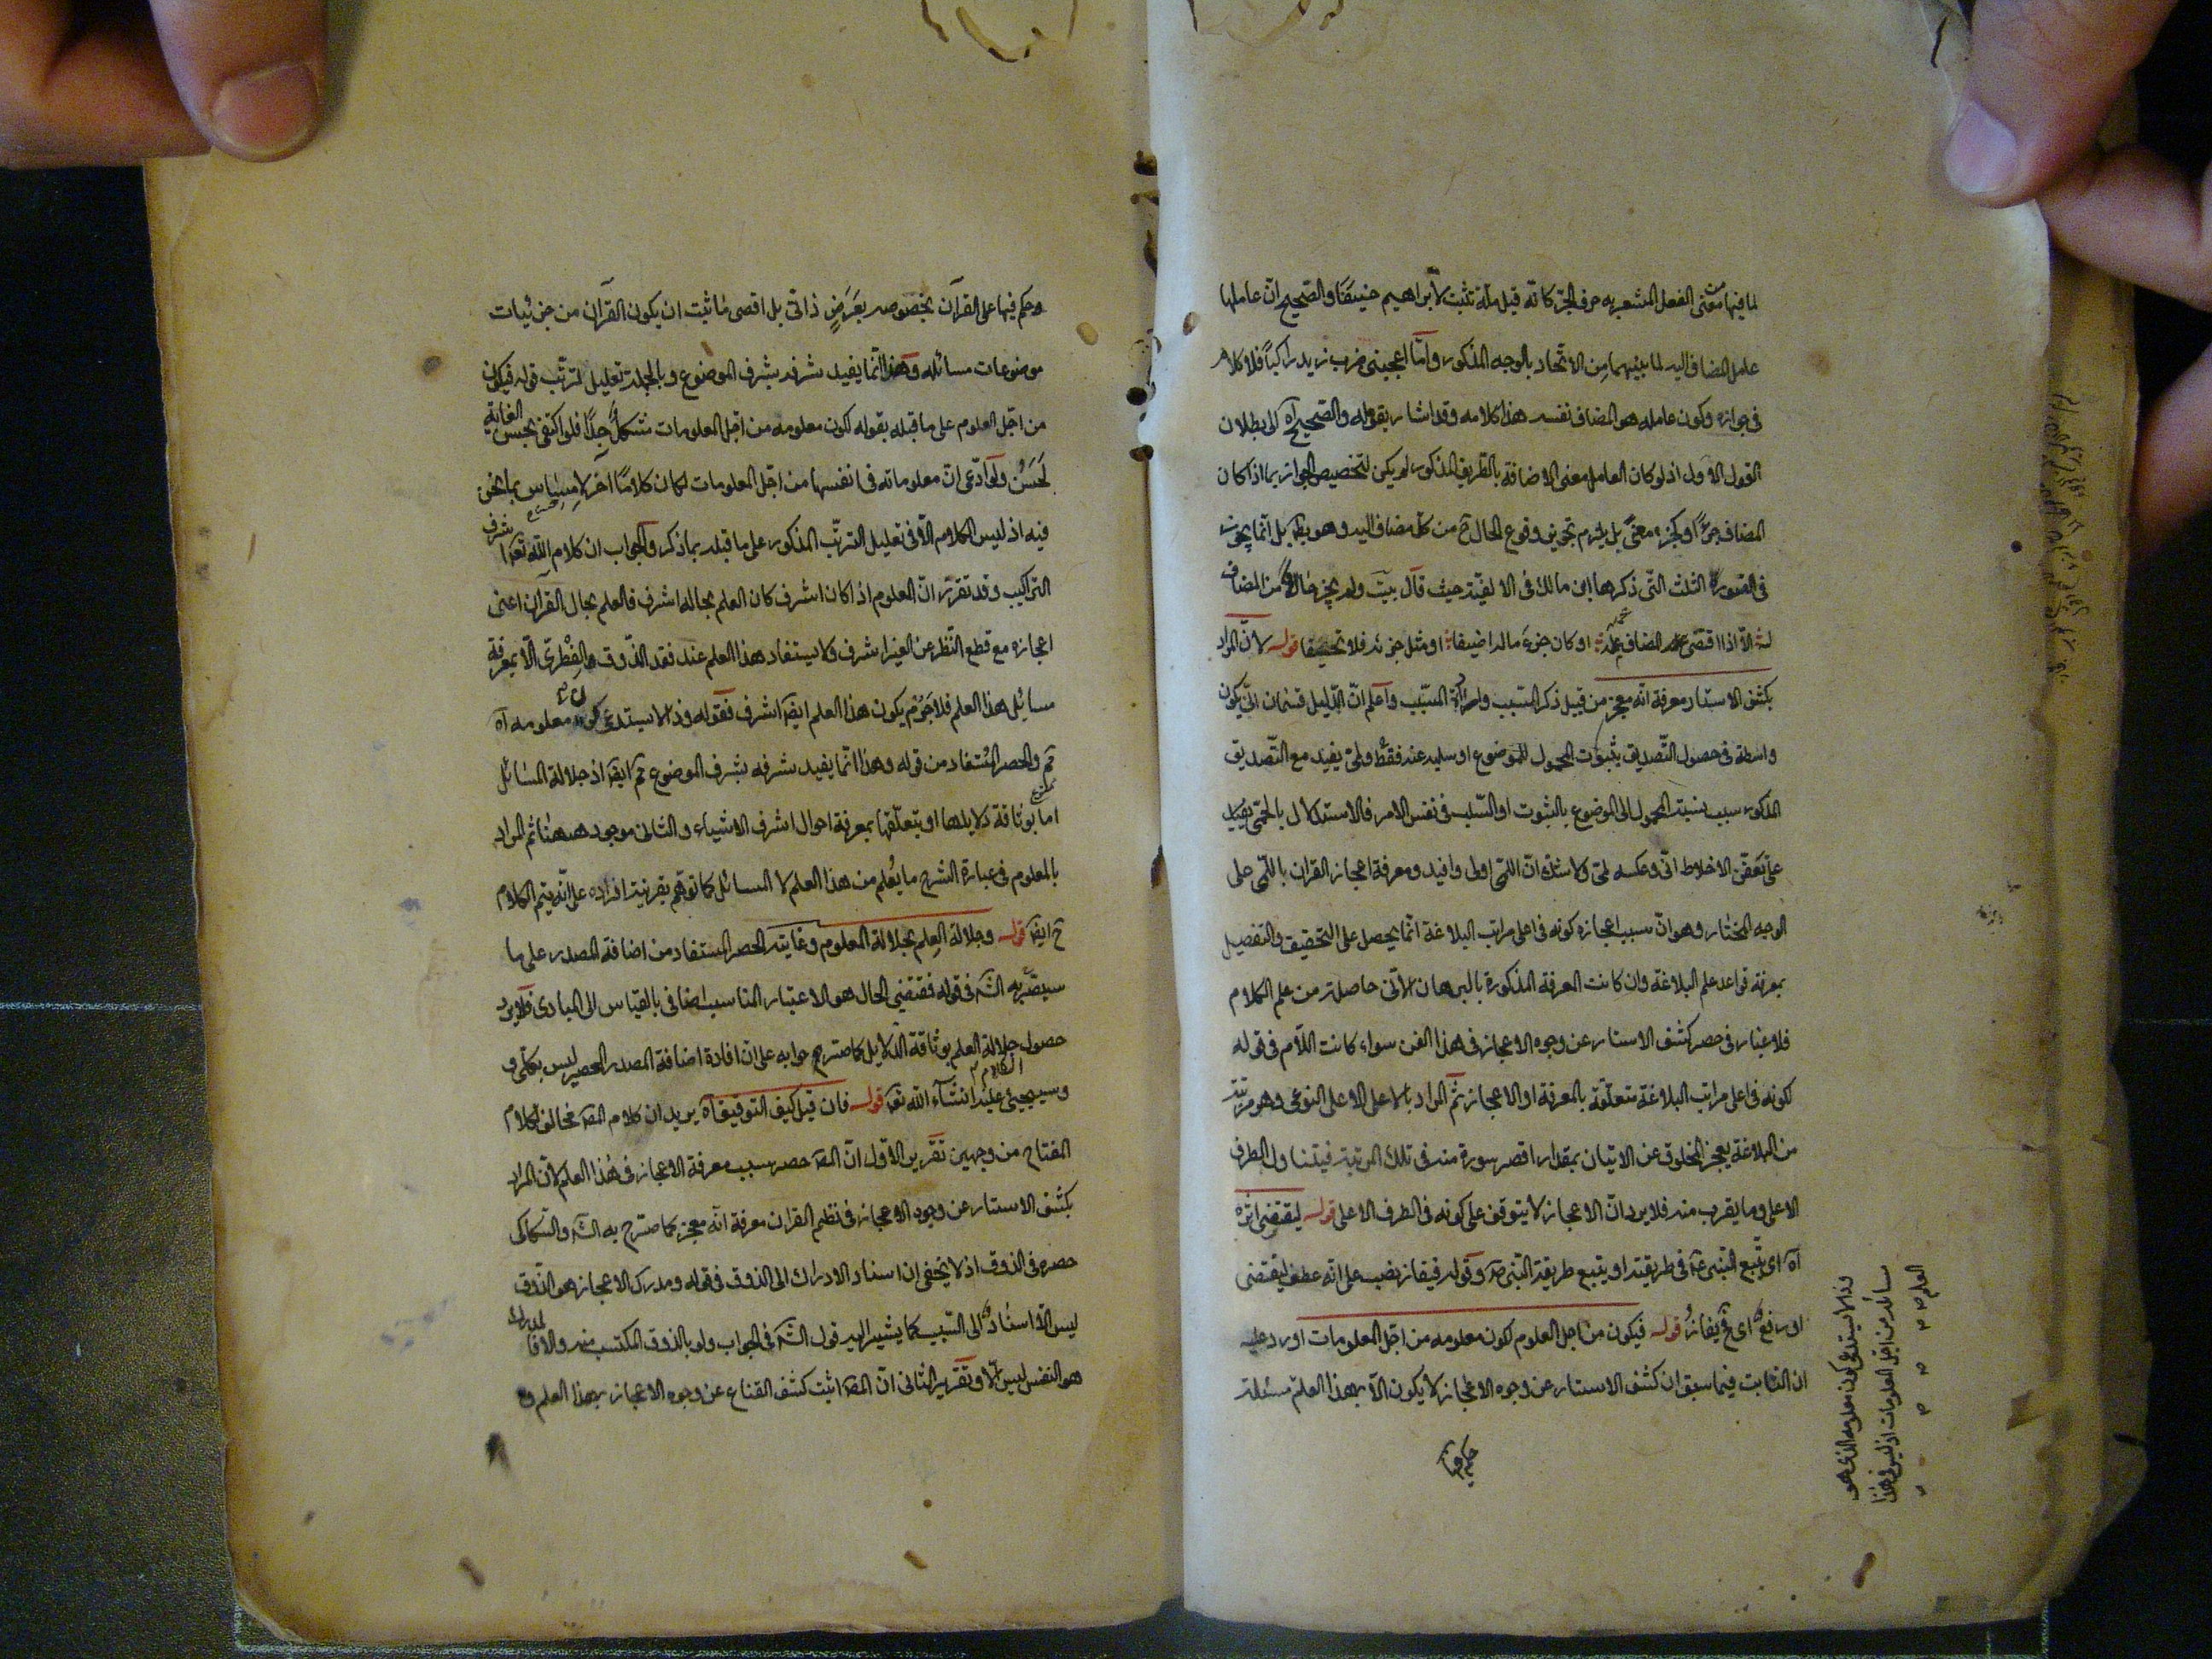 لما فيها من معنى الفعل المشعر به حرف الجر كانه قيل ملة تثبت لابراهيم حنيفا والصحيح ان عاملها
عامل المضاف اليه لما بينهما من الاتحاد بالوجه المذكور واما اعجبنى ضرب زيد راكبا فلا كلام
فى جوازه وكون عامله هو المضاف نفسه هذا كلامه وقد اشار بقوله والصحيح آه الى بطلان
القول الاول اذ لو كان العامل معنى الاضافة بالطريق المذكور لم يكن لتخصيص الجواز بما اذا كان
المضاف جزءا او كجزء معنى بل يلزم تجويز وقوع الحال ح من كل مضاف اليه وهو بط بل انما يجوز
فى الصورة الثلث التى ذكرها ابن مالك فى الالفية حيث قال بيت ولا تجز حالا من المضاف
له الا اذا اقتضى المضاف عمله او كان جزء ما له اضيفا او مثل جزئه فلا تحيفا قوله لان المراد
بكشف الاستار معرفة انه معجز من قبيل ذكر السبب وارادة المسبب واعلم ان الدليل قسمان انى يكون
واسطة فى حصول التصديق بثبوت المحمول للموضوع او سلبه عنه فقط ولمى يفيد مع التصديق
المذكور سبب نسبة المحمول الى الموضوع بالثبوت او السلب فى نفس الامر فالاستدلال بالحمى
على تعفن الاخلاط انى وعكسه لمى ولا شك ان اللمى اولى وافيد ومعرفة اعجاز القران باللمى على
الوجه المختار وهو ان سبب اعجازه كونه فى اعلى مراتب البلاغة انما يحصل على التحقيق والتفصيل
بمعرفة قواعد علم البلاغة وان كانت المعرفة المذكورة بالبرهان الانى حاصلة من علم الكلام
فلا غبار فى حصر كشف الاستار عن وجوه الاعجاز فى هذا الفن سواء كانت اللام فى قوله
لكونه فى اعلى مراتب البلاغة متعلقة بالمعرفة او الاعجاز ثم المراد بالاعلى الاعلى النوعى وهو مرتبة
من البلاغة يعجز المخلوق عن الاتيان بمقدار اقصر سورة منه فى تلك المرتبة فيتناول الطرف
الاعلى وما يقرب منه فلا يرد ان الاعجاز لا يتوقف على كونه فى الطرف الاعلى قوله ليقتفى اثره
آه اى يتبع النبى عم فى طريقته او يتبع طريقة النبى عم وقوله فيفاز نصب على انه عطف ليقتفى
او رفع اى فح يفاز قوله فيكون من اجل العلوم لكون معلومه من اجل المعلومات اورد عليه
ان الثابت فيما سبق ان كشف الاستار عن وجوه الاعجاز لا يكون الا بهذا العلم مسئلة
وذا لا يستدعى كون معلومه الذى هو
مسائله من اجل المعلومات اذ ليس فى هذا
العلم
وحكم فيها على القرآن بخصوصه بعرض ذاتى بل اقصى ما ثبت ان يكون القرآن من جزئيات
موضوعات مسائله وهذا انما يفيد شرفه بشرف الموضوع وبالجملة تعليل ترتب قوله فيكون
من اجل العلوم على ما قبله بقوله لكون معلومه من اجل المعلومات مشكل جدا فلو اكتفى بحسن الغاية
لحسن ولو ادعى ان معلوماته فى انفسها من اجل المعلومات لكان كلاما آخر لا مساس بما نحن
فيه اذ ليس الكلام الا فى تعليل الترتب المذكور على ما قبله بما ذكر والجواب ان كلام الله تعه اشرف
التراكيب وقد تقرر ان المعلوم اذا كان اشرف كان العلم بحاله اشرف فالعلم بحال القرآن اعنى
اعجازه مع قطع النظر عن الغير اشرف ولا يستفاد هذا العلم عند فقد الذوق الفطرى الا بمعرفة
مسائل هذا العلم فلا جرم يكون هذا العلم ايضه اشرف فقوله وذا لا يستدعى كون معلومه آه
مم والحصر المستفاد من قوله وهذا انما يفيد شرفه بشرف الموضوع مم ايضه اذ جلالة المسائل
اما بوثاقة دلايلها او بتعلقها بمعرفة احوال اشرف الاشياء والثانى موجود ههنا ثم المراد
بالمعلوم فى عبارة الشرح ما يعلم من هذا العلم لا المسائل كما توهم بقرينة افراده على انه يتم الكلام
ح ايضه قوله وجلالة العلم بجلالة المعلوم وغايته الحصر المستفاد من اضافة المصدر على ما
سيصرح به الشه فى قوله فمقتضى الحال هو الاعتبار المناسب اضافى بالقياس الى المبادى فلا يرد
حصول جلالة العلم بوثاقة الدلايل كما صرح جوابه على ان افادة اضافة المصدر الحصر ليس بكلى و
وسيجيئ عليه الكلام انشاء الله تعه قوله فان قيل كيف التوفيق آه يريد ان كلام المصه مخالف لكلام
المفتاح من وجهين تقرير الاول ان المصه حصر سبب معرفة الاعجاز فى هذا العلم لان المراد
بكشف الاستار عن وجوه الاعجاز فى نظم القران معرفة انه معجز كما صرح به الشه والسكاكى
حصره فى الذوق اذ لا يخفى ان اسناد الادراك الى الذوق فى قوله ومدرك الاعجاز هو الذوق
ليس الا اسنادا الى السبب كما يشير اليه قول الشه فى الجواب ولو بالذوق المكتسب منه والا فالمدرك
هو النفس ليس الا وتقرير الثانى ان المصه اثبت كشف القناع عن وجوه الاعجاز بهذا العلم